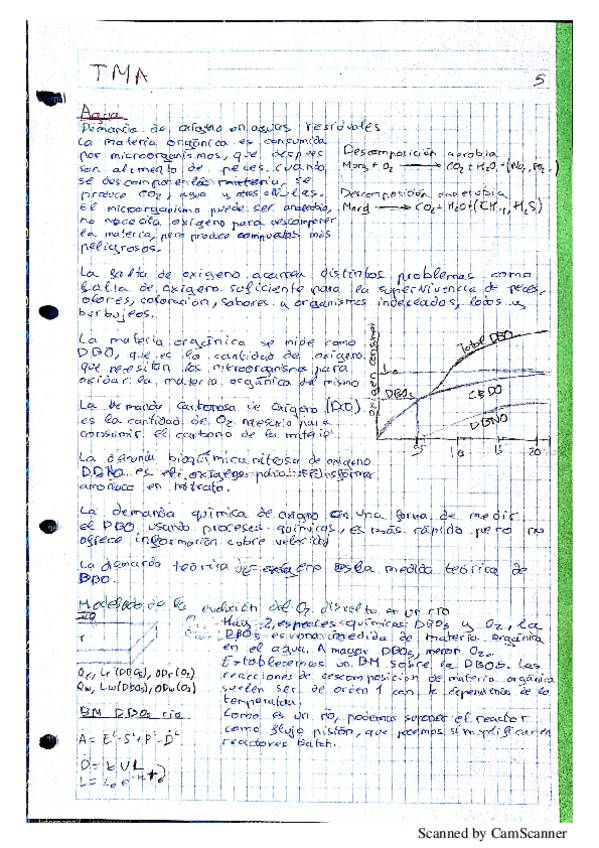 TMA
5
Agua
Demanda de oxígeno en aguas residuales
La materia orgánica es consumida
por microorganismos, que después
son alimento de peces. cuando
se descompone la materia, se
produce CO2, agua y
el microorganismo puede ser anaerobio,
no necesita oxígeno para descomponer
la materia, pero produce compuestos más
peligrosos.
Descomposición aerobia
Morg + O2 → CO2 + H2O +
Descomposición anaerobia
Morg → CO2 + H2O + (CH4, H2S)
La falta de oxígeno acarrea distintos problemas como
falta de oxígeno suficiente para la supervivencia de peces,
olores, coloración, sabores y organismos indeseados, lodos y
burbujeos.
La materia orgánica se mide como
DBO, que es la cantidad de oxígeno
que necesitan los microorganismo para
oxidar la materia orgánica
La demanda carbonosa de oxígeno
es la cantidad de O2 necesario para
consumir el carbono de la materia
La demanda bioquímica nitrosa de oxígeno
DBNO es el oxígeno para transformar
amoniaco en nitrato.
oxígeno consumido
Total DBO
Lo
DBO5
CBDO
DBNO
5
10
15
20
La demanda química de oxígeno es una forma de medir
el DBO usando procesos químicos, es más rápido pero no
ofrece información sobre velocidad
La demanda teórica de oxígeno es la medida teórica de
BDO.
Modelado de la evolución del O2 disuelto en un río
Hay 2 especies químicas DBO5 y O2, la
DBO5 es una medida de materia orgánica
en el agua. A mayor DBO5, menor O2.
Establecemos un BM sobre la DBO5. Las
reacciones de descomposición de materia orgánica
suelen ser de orden 1 con k dependiente de la
temperatura.
Como es un río, podemos suponer el reactor
como flujo pistón, que podemos simplificar en
reactores batch.
r
Qr, Lr (DBO5), ODr (O2)
Qw, Lw (DBO5), ODw (O2)
BM DBO5 río
A = E - S + P - D
D = k V L
Scanned by CamScanner